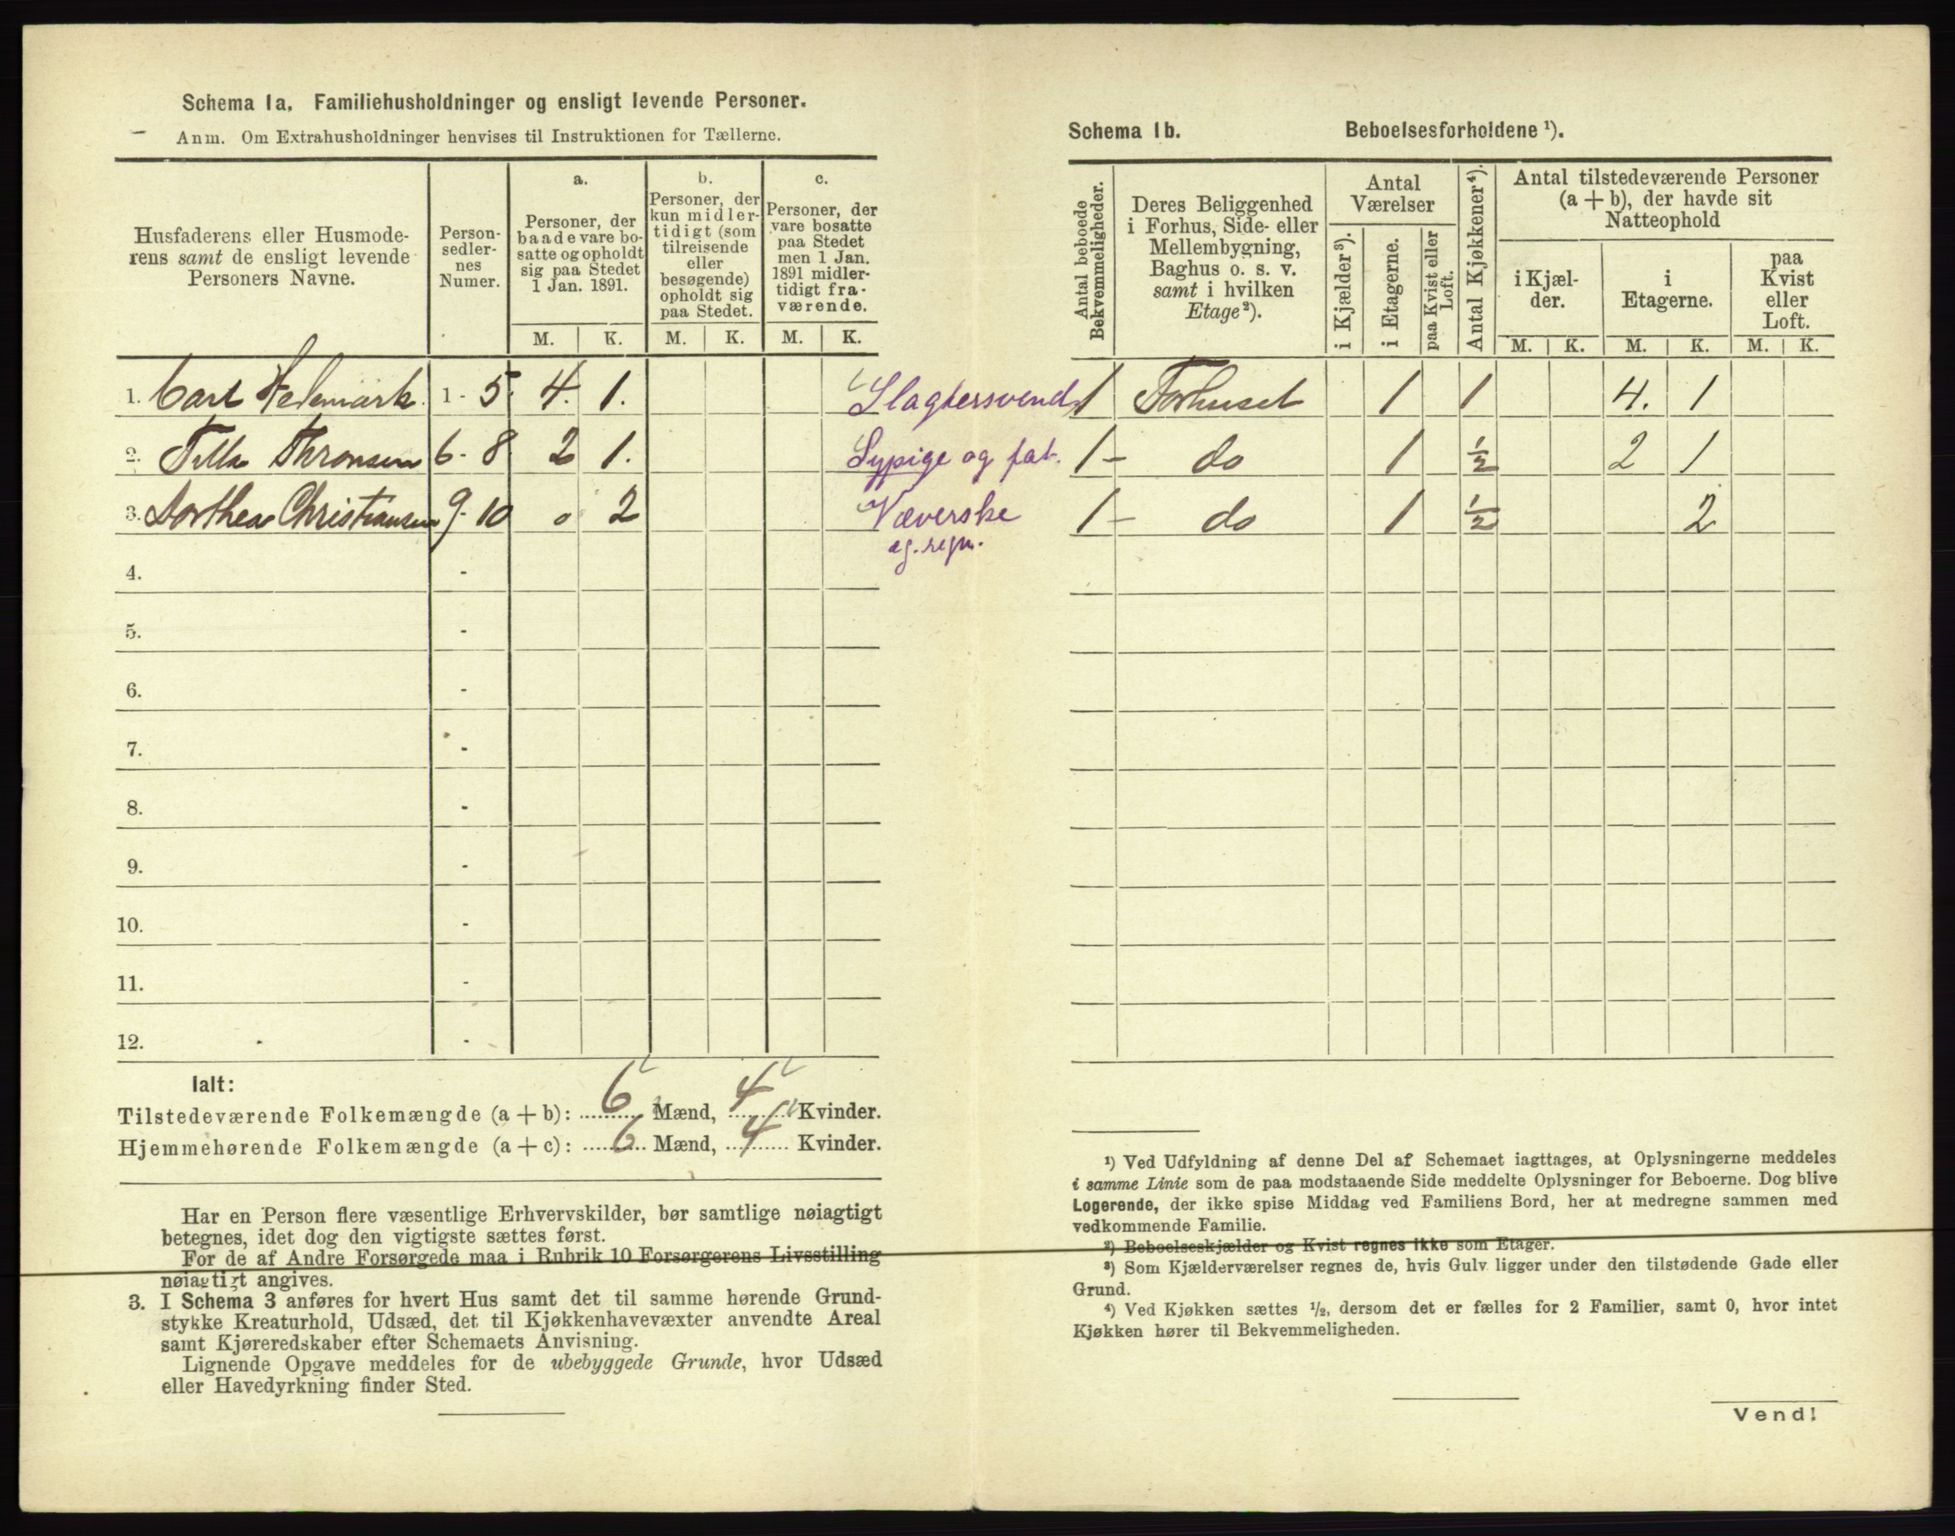 Schema 1a. Familiehusholdninger og ensligt levende Personer.
Anm. Om Extrahusholdninger henvises til Instruktionen for Tællerne.
Husfaderens eller Husmoderens samt de ensligt levende Personers Navne.
Personsedlernes Numer.
a.
Personer, der baade vare bosatte og opholdt sig paa Stedet 1 Jan. 1891.
b.
Personer, der kun midlertidigt (som tilreisende eller besøgende) opholdt sig paa Stedet.
c.
Personer, der vare bosatte paa Stedet men 1 Jan. 1891 midlertidigt fraværende.
M. K. M. K. M. K.
1. Carl Hedemark. 1-5. 4. 1. Slagtersvend
2. Filla Thronsen 6-8 2 1. Sypige og fat.
3. Dorthea Christiansen 9-10 0 2 Væverske
og. regn.
4. -
5. -
6. -
7. -
8. -
9. -
10. -
11. -
12. -
Ialt:
Tilstedeværende Folkemængde (a + b): 6 Mænd, 4 Kvinder.
Hjemmehørende Folkemængde (a + c): 6 Mænd, 4 Kvinder.
Har en Person flere væsentlige Erhvervskilder, bør samtlige nøiagtigt
betegnes, idet dog den vigtigste sættes først.
For de af Andre Forsørgede maa i Rubrik 10 Forsørgerens Livsstilling
nøiagtigt angives.
3. I Schema 3 anføres for hvert Hus samt det til samme hørende Grund-
stykke Kreaturhold, Udsæd, det til Kjøkkenhavevæxter anvendte Areal
samt Kjøreredskaber efter Schemaets Anvisning.
Lignende Opgave meddeles for de ubebyggede Grunde, hvor Udsæd
eller Havedyrkning finder Sted.
Schema 1b. Beboelsesforholdene ¹).
Antal beboede Bekvemmeligheder.
Deres Beliggenhed i Forhus, Side- eller Mellembygning, Baghus o. s. v. samt i hvilken Etage²).
Antal Værelser
i Kjælder³).
i Etagerne.
paa Kvist eller Loft.
Antal Kjøkkener⁴).
Antal tilstedeværende Personer (a + b), der havde sit Natteophold
i Kjælder.
i Etagerne.
paa Kvist eller Loft.
M. K. M. K. M. K.
1 Forhuset 1 1 4. 1
1 - do 1 ½ 2 1
1 - do 1 ½ 2
¹) Ved Udfyldning af denne Del af Schemaet iagttages, at Oplysningerne meddeles
i samme Linie som de paa modstaaende Side meddelte Oplysninger for Beboerne. Dog blive
Logerende, der ikke spise Middag ved Familiens Bord, her at medregne sammen med
vedkommende Familie.
²) Beboelseskjælder og Kvist regnes ikke som Etager.
³) Som Kjælderværelser regnes de, hvis Gulv ligger under den tilstødende Gade eller
Grund.
⁴) Ved Kjøkken sættes ½, dersom det er fælles for 2 Familier, samt 0, hvor intet
Kjøkken hører til Bekvemmeligheden.
Vend!